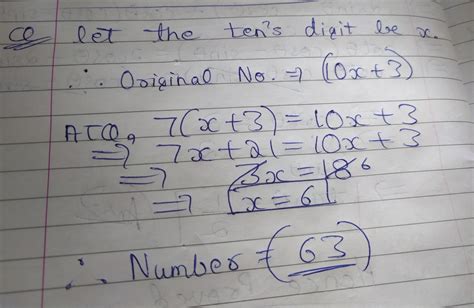 CQ let the ten's digit be x.
∴ Original No. ⇒ (10x+3)
ATCQ, 7(x+3) = 10x+3
⇒ 7x+21 = 10x+3
⇒ 3x = 18 6
⇒ x = 6
∴ Number = (63)